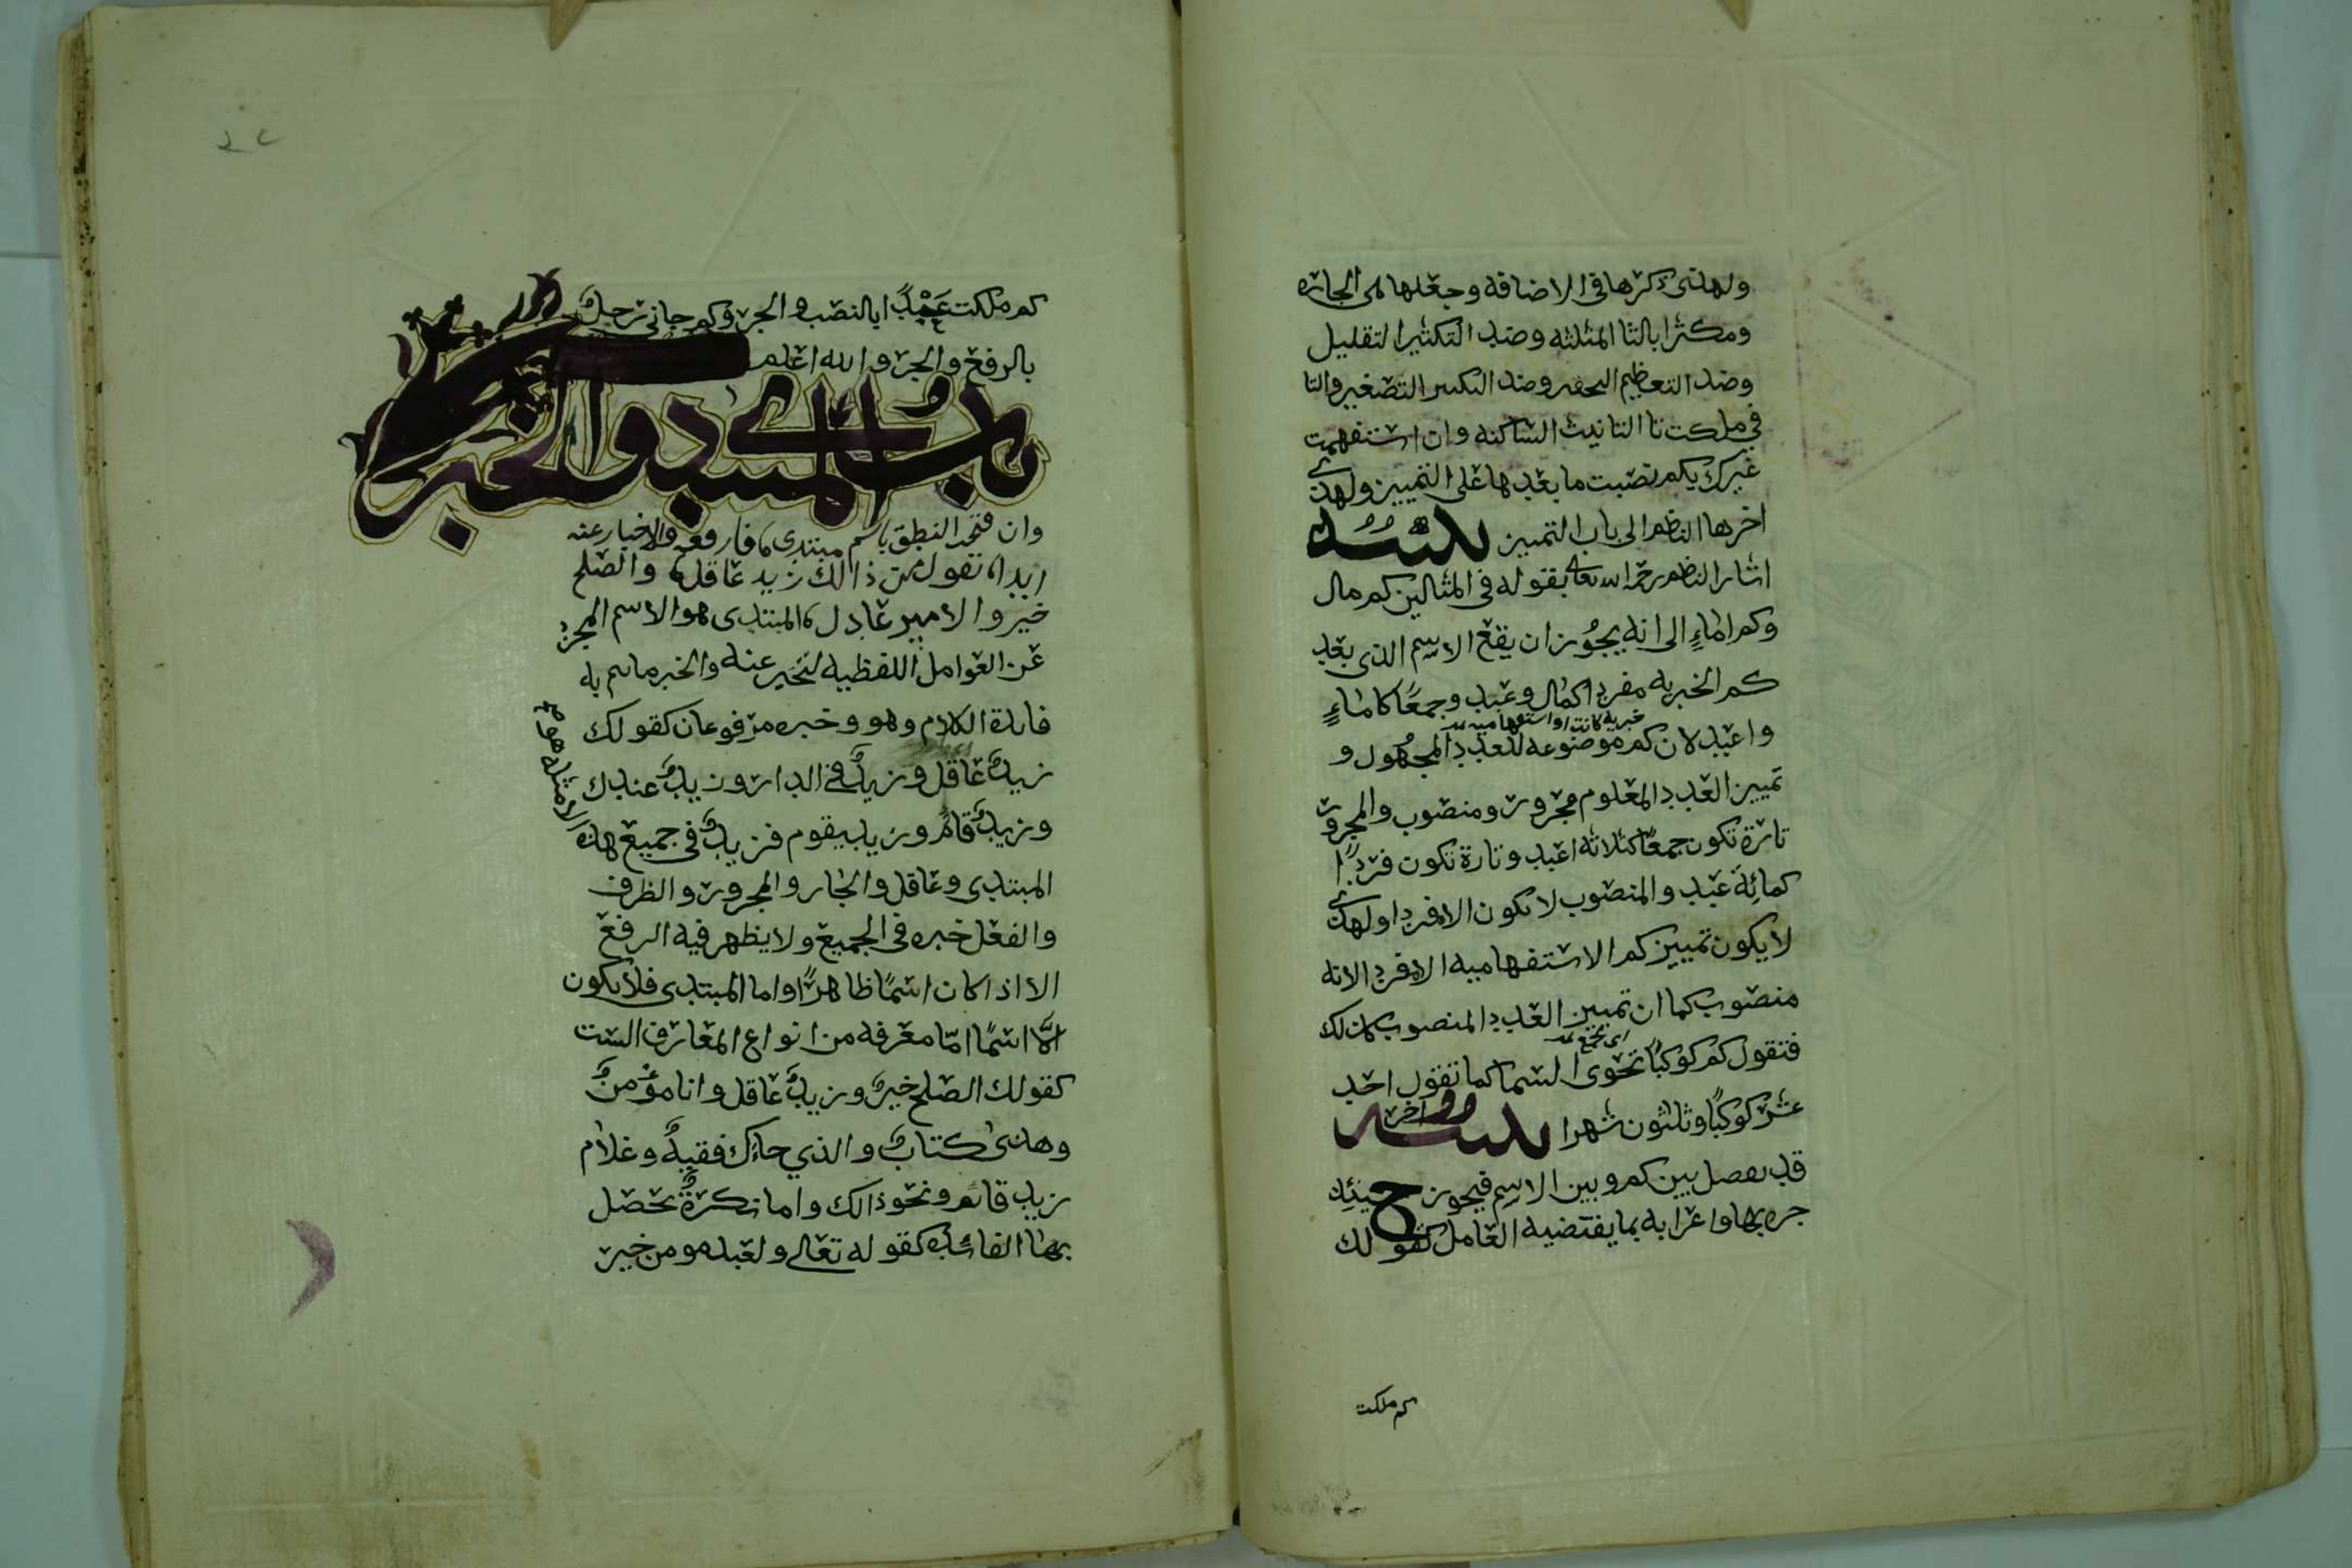 ولهذى ذكرها فى الاضافة وجعلها من الجارة
ومكثرا بالثا المثلثه وضد التكثير التقليل
وضد التعظيم التحقير وضد التكبير التصغير والتا
في ملكت تا التانيث الساكنه وان استفهمت
غيرك بكم نصبت ما بعدها على التمييز ولهذى
اخرها الناظم الى باب التمييز تنبيه
اشار الناظم رحمه الله تعالى بقوله فى المثالين كم مال
وكم اماءٍ الى انه يجوز ان يقع الاسم الذى بعد
كم الخبريه مفردا كمال وعبد وجمعًا كاماءٍ
خبريه كانت او استفهاميه
واعبد لان كم موضوعه للعدد المجهول و
تمييز العدد المعلوم مجرور ومنصوب والمجرور
تارة تكون جمعًا كثلاثه اعبد وتارة تكون فردًا
كمائة عبد والمنصوب لا يكون الا مفردا ولهذى
لا يكون تمييز كم الاستفهاميه الا مفردا لانه
منصوب كما ان تمييز العدد المنصوب كذلك
اى تجمع
فتقول كم كوكبًا تحوى السما كما تقول احد
عشر كوكبًا وثلثون شهرا تنبيه اخر
قد يفصل بين كم وبين الاسم فيجوز حينئذ
جره بها واعرابه بما يقتضيه العامل كقولك
كم ملكت
كم ملكت عبدًا بالنصب والجر وكم جانى رجل
بالرفع والجر والله اعلم
باب المبتدى والخبر
وان فتحت النطق باسم مبتدى فارفعه والاخبار عنه
ابدا تقول من ذالك زيد عاقل والصلح
خير والامير عادل المبتدى هو الاسم المجرد
عن العوامل اللفظيه لتخبر عنه والخبر ماتم به
فايدة الكلام وهو وخبره مرفوعان كقولك
زيدٌ عاقل وزيدٌ فى الدار وزيدٌ عندك
وزيدٌ قائم وزيد يقوم فزيدٌ فى جميع هذه
الامثله هو
المبتدى وعاقل والجار والمجرور والظرف
والفعل خبره فى الجميع ولا يظهر فيه الرفع
الا اذا كان اسمًا ظاهرًا واما المبتدى فلا يكون
الَّا اسمًا امّا معرفه من انواع المعارف الست
كقولك الصلح خيرٌ وزيدٌ عاقل وانا مؤمنٌ
وهذى كتابٌ والذي جاءك فقيهٌ وغلام
زيد قائم ونحو ذالك واما نكرةٌ تحصل
بها الفائده كقوله تعالى ولعبد مومن خير